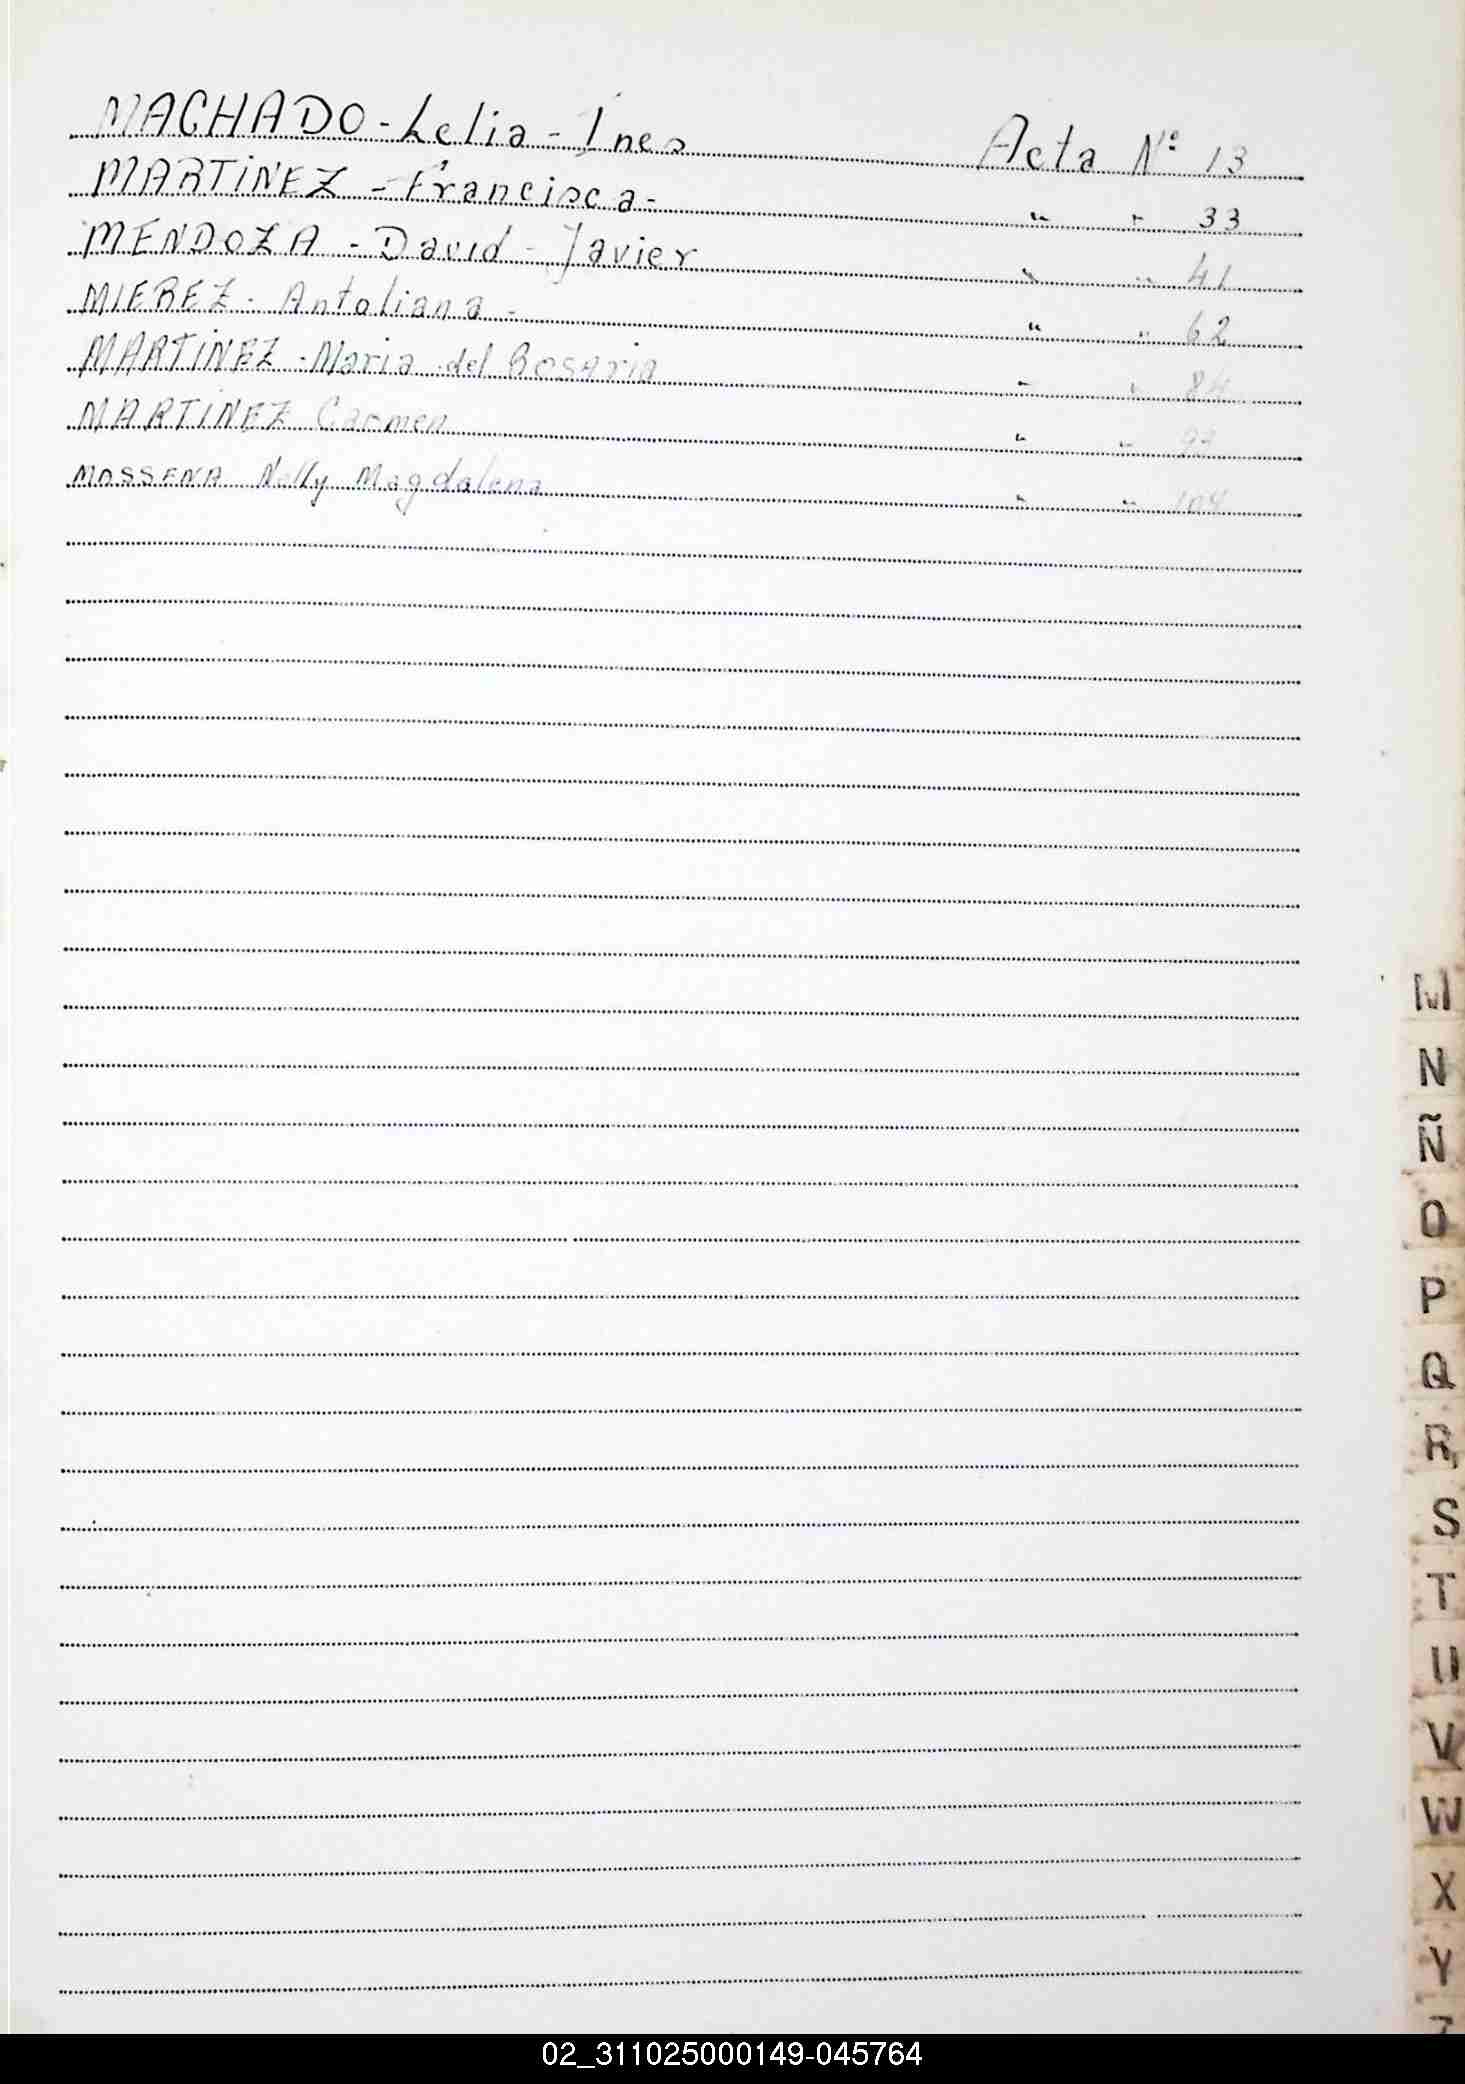 MACHADO - Lelia - Ines Acta Nº 13
MARTINEZ - Francisca - " " 33
MENDOZA - David - Javier " " 41
MIEREZ - Antoliana - " " 62
MARTINEZ - Maria del Rosario " " 84
MARTINEZ Carmen " "
MASSENA Nelly Magdalena " " 104
M
N
Ñ
O
P
Q
R
S
T
U
V
W
X
Y
Z
02_311025000149-045764